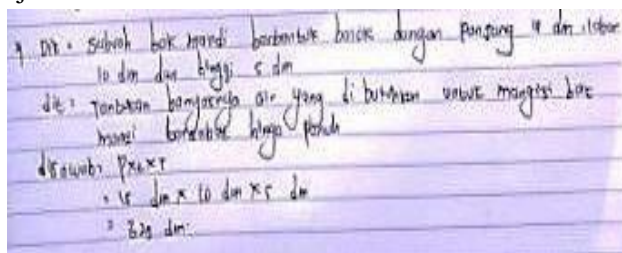 Dit : Sebuah bak mandi berbentuk balok dengan panjang dm, lebar
10 dm dan tinggi 5 dm
dit : Tentukan banyaknya air yang di butuhkan untuk mengisi bak
mandi hingga penuh
dijawab : PxLxT
dm x 10 dm x 5 dm
dm